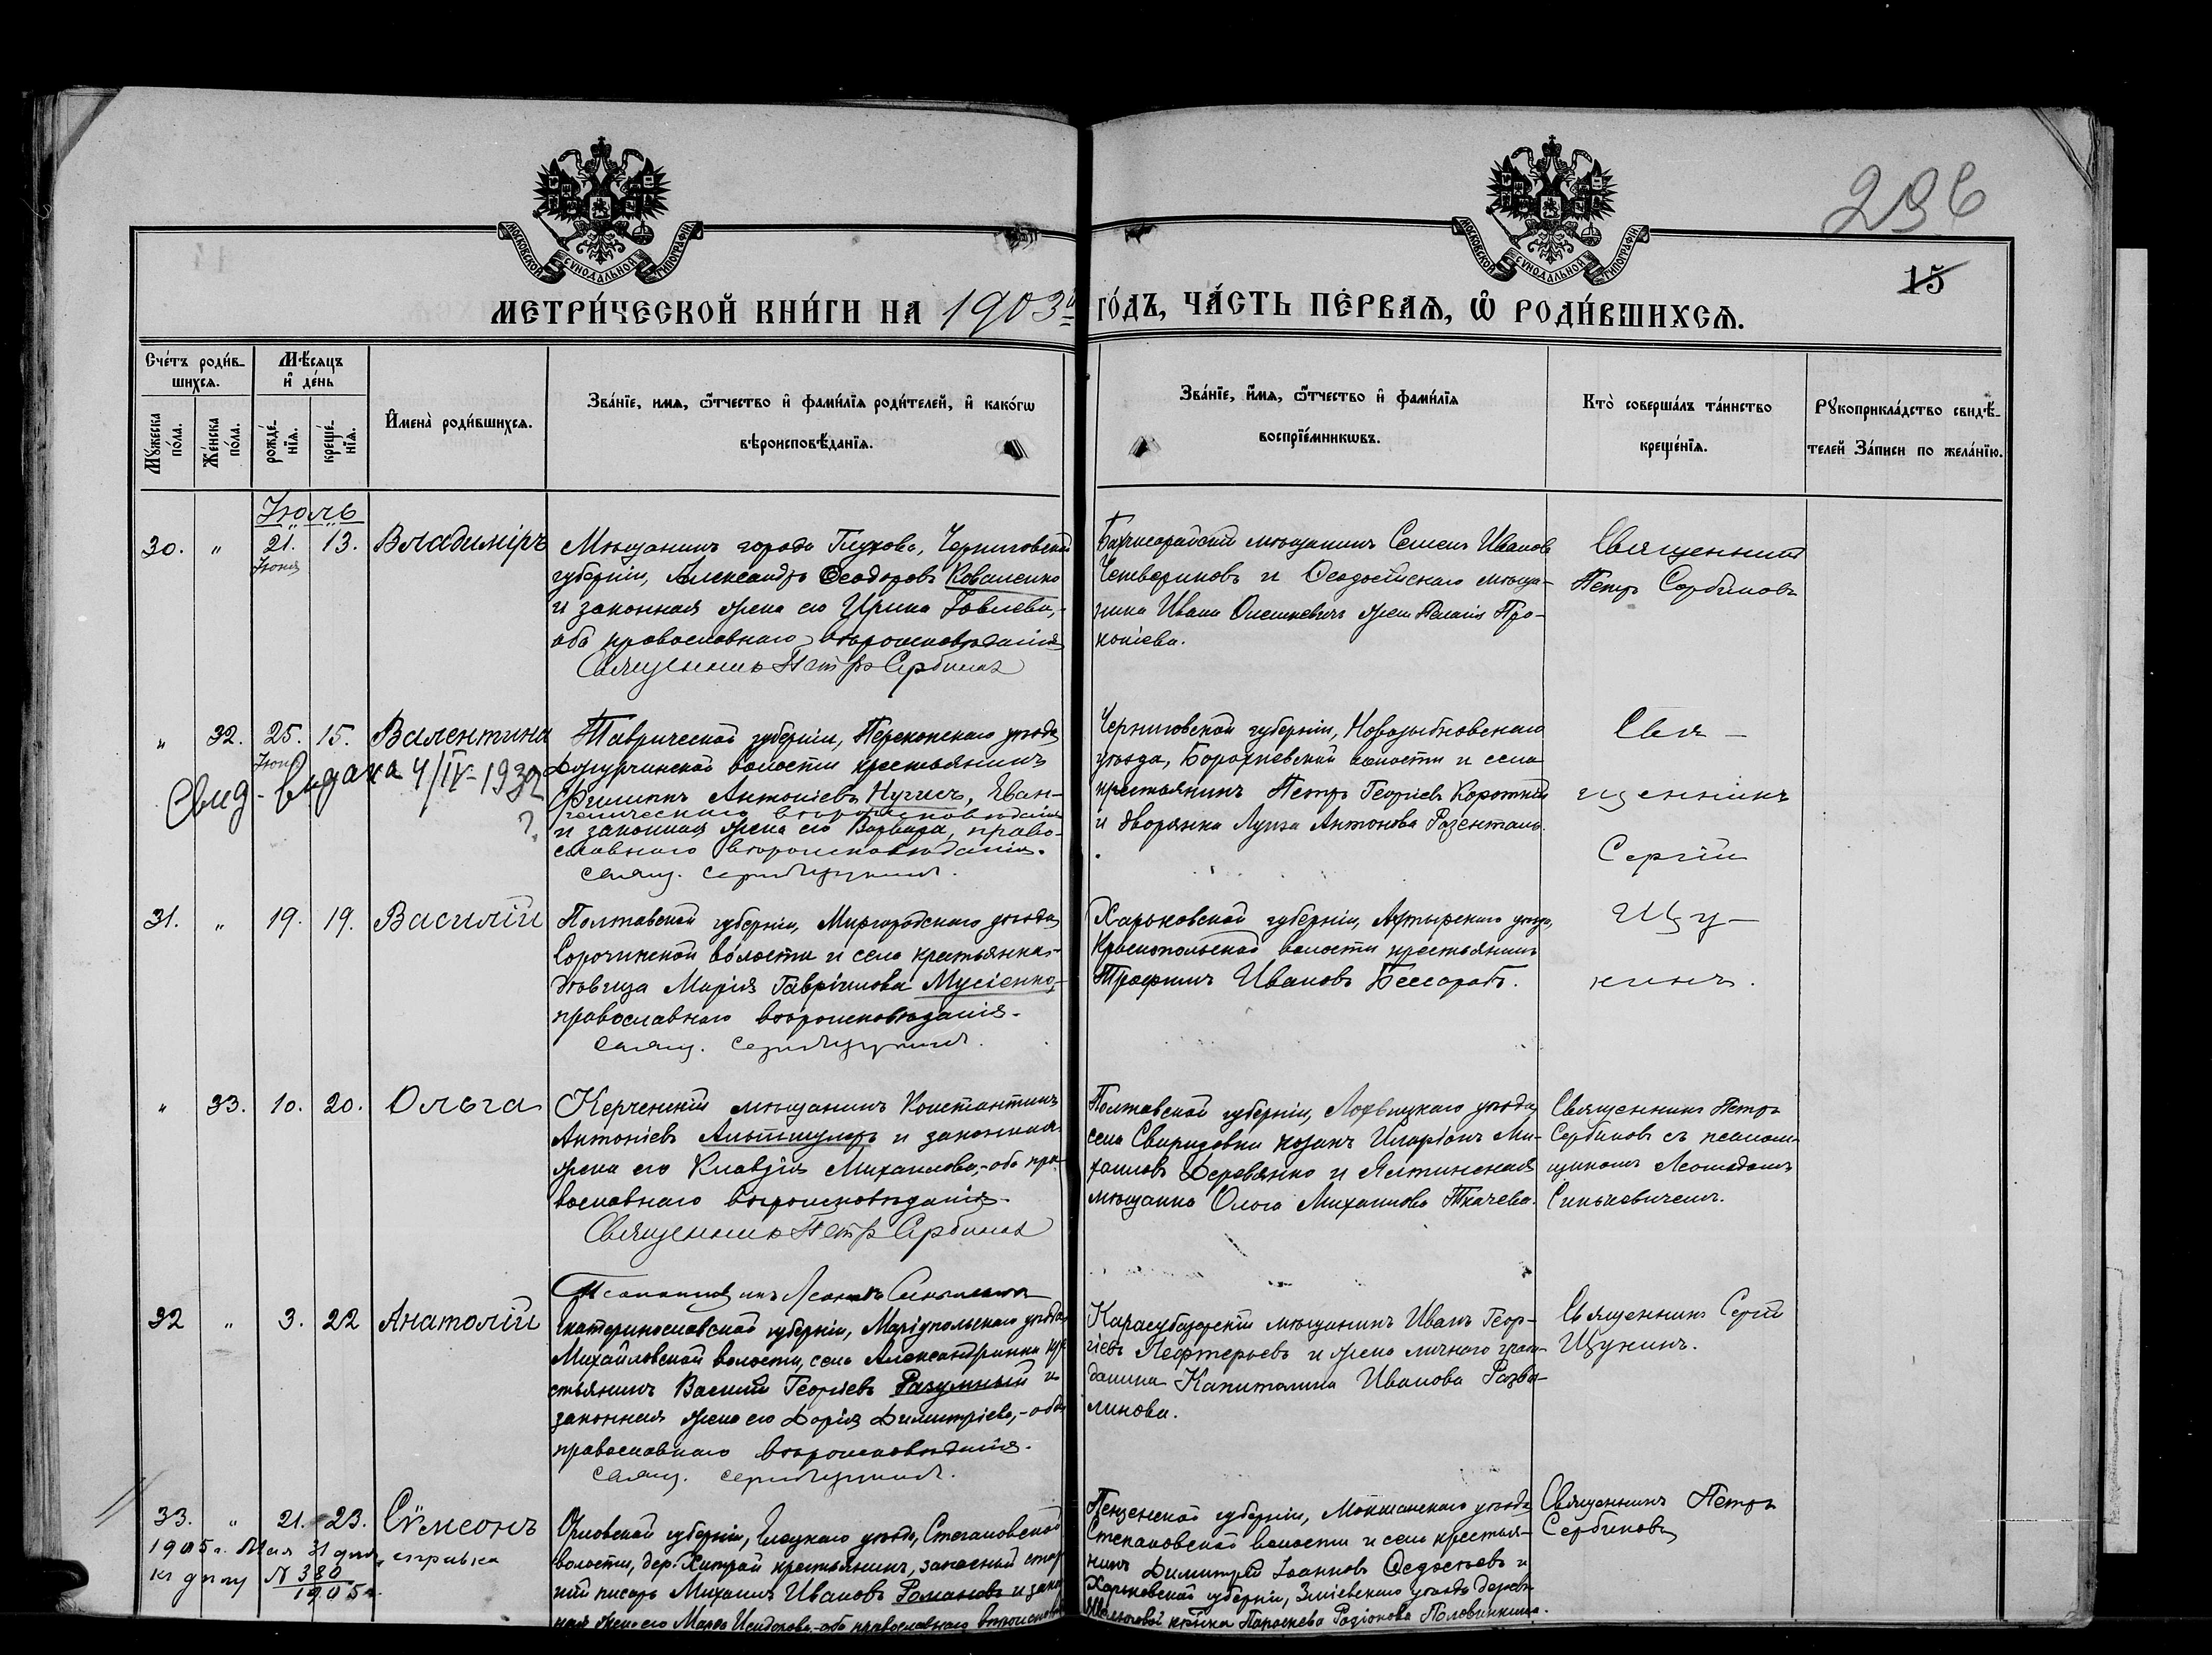 296
15
МОСКОВСКОЙ СУНОДАЛЬНОЙ ТИПОГРАФІИ
МОСКОВСКОЙ СУНОДАЛЬНОЙ ТИПОГРАФІИ
МЕТРИ́ЧЕСКОЙ КНИ́ГИ НА 1903й ГО́ДЪ, ЧА́СТЬ ПЕ́РВАЯ, Ѡ РОДИ́ВШИХСЯ.
Сче́тъ роди́в-
шихся.
Мѣ́сяцъ
и҆ де́нь
Му́жеска
по́ла.
Же́нска
по́ла.
рожде́-
нїѧ.
креще́-
нїѧ.
И҆мена̀ роди́вшихся.
Зва́нїе, имя, ѻ҆́тчество и҆ фами́лїѧ роди́телей, и҆ како́гѡ
вѣроисповѣ́данїѧ.
Зва́нїе, и҆́мя, ѻ҆́тчество и҆ фами́лїѧ
воспрїе́мникѡвъ.
Кто̀ соверша́лъ та́инство
креще́нїѧ.
Рꙋкоприкла́дство свидѣ́-
телей За́писи по жела́нїю.
Іюль
30. " 21. 13. Владиміръ
Іюня
Мѣщанинъ города Глухова, Черниговской
губерніи, Александръ Ѳеодоровъ Коваленко
и законная жена его Ирина Іовлева,-
оба православнаго вѣроисповѣданія
Священникъ Петръ Сербиновъ
Бахчисарайскій мѣщанинъ Семенъ Ивановъ
Четвериковъ и Ѳеодосійскаго мѣща-
нина Ивана Олешкевича жена Пелагія Про-
копіева.
Священникъ
Петръ Сербиновъ
" 32. 25. 15. Валентина
Іюня
Свид. видана 4/IV-1932
?
Таврической губерніи, Перекопскаго уѣзда
волости крестьянинъ
Филиппъ Антоніевъ Нугисъ, Еван-
гелическаго вѣроисповѣданія
и законная жена его Варвара, право-
славнаго вѣроисповѣданія.
Свящ. Сергій Щукинъ.
Черниговской губерніи, Новозыбковскаго
уѣзда, волости и села
крестьянинъ Петръ Георгіевъ Короткій
и дворянка Луиза Антонова Розенталь.
Свя-
щенникъ
Сергій
Щу-
кинъ.
31. " 19. 19. Василій
Полтавской губерніи, Миргородскаго уѣзда
Сорочинской волости и села крестьянка-
дѣвица Марія Гавріилова Мусіенко,-
православнаго вѣроисповѣданія.
Свящ. Сергій Щукинъ.
Харьковской губерніи, Ахтырскаго уѣзда,
Краснопольской волости крестьянинъ
Трофимъ Ивановъ Бессарабъ.
" 33. 10. 20. Ольга
Керченскій мѣщанинъ Константинъ
Антоніевъ Альтшулеръ и законная
жена его Клавдія Михаилова,-оба пра-
вославнаго вѣроисповѣданія.
Священникъ Петръ Сербиновъ
Псаломщикъ
Полтавской губерніи, Лохвицкаго уѣзда,
села Свиридовки козакъ Иларіонъ Ми-
хаиловъ Деревянко и Ялтинская
мѣщанка Ольга Михаилова Ткачева.
Священникъ Петръ
Сербиновъ съ псалом-
щикомъ Леонидомъ
Синькевичемъ.
32 " 3. 22 Анатолій
Екатеринославской губерніи, Маріупольскаго уѣзда
Михайловской волости, села Александринки кре-
стьянинъ Василій Георгіевъ Разумный и
законная жена его Дарія Димитріева,-оба
православнаго вѣроисповѣданія.
Свящ. Сергій Щукинъ.
Карасубазарскій мѣщанинъ Иванъ Геор-
гіевъ Лефтерьевъ и жена личнаго граж-
данина Капиталина Иванова Разва-
линова.
Священникъ Сергій
Щукинъ.
33. " 21. 23. Сѵмеонъ
1905 г. Мая 31 дня, справка
къ дѣлу № 380
1905 г.
Орловской губерніи, Елецкаго уѣзда, Стегаловской
волости, дер. Хитрой крестьянинъ, запасный стар-
шій писарь Михаилъ Ивановъ Романовъ и закон-
ная жена его Марѳа Исидорова,-оба православнаго вѣроисповѣд
Пензенской губерніи, Мокшанскаго уѣзда
Степановской волости и села крестья-
нинъ Димитрій Іоанновъ Ѳедосѣевъ и
Харьковской губерніи, Зміевскаго уѣзда дерев.
кр-нка Параскева Родіонова Половинкина.
Священникъ Петръ
Сербиновъ